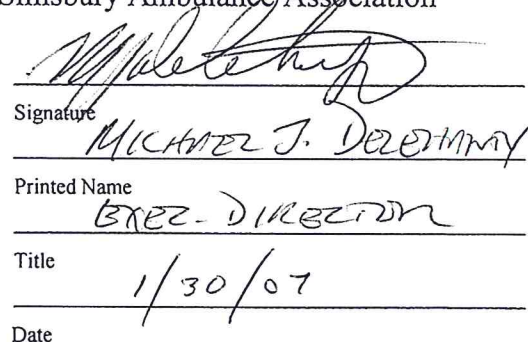 Simsbury Ambulance Association
Signature
MICHAEL J. DELEHANTY
Printed Name
EXEC- DIRECTOR
Title
1/30/07
Date